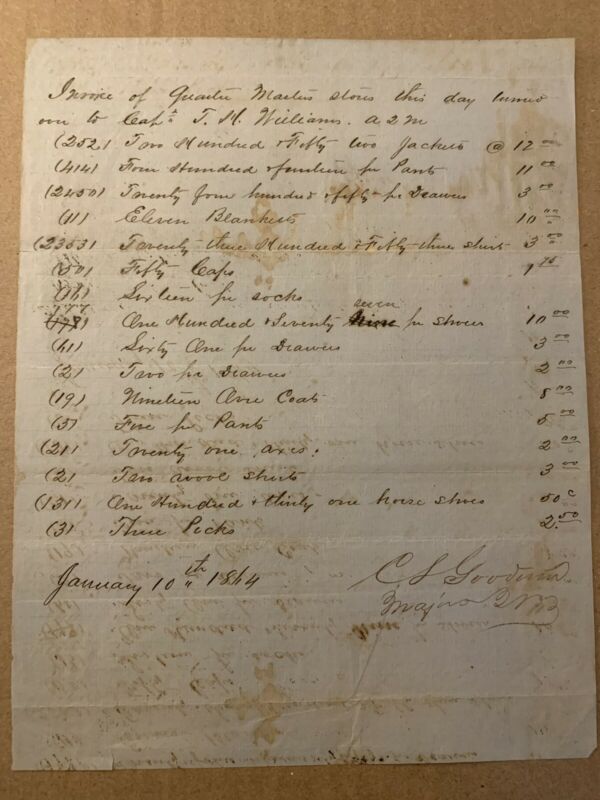 Invoice of Quarter Masters stores this day turned
over to Capt. T. H. Williams. A Q M
(252) Two Hundred & Fifty two Jackets @ 12 00
(414) Four Hundred & fourteen pr Pants 11 00
(2450) Twenty four hundred & fifty pr Drawers 3 00
(11) Eleven Blankets 10 00
(2353) Twenty-three Hundred & Fifty-three shirts 3 00
(50) Fifty Caps 1 75
(16) Sixteen pr socks
177 seven
One Hundred & Seventy nine pr shoes 10 00
(61) Sixty One pr Drawers 3 00
(2) Two pr Drawers 2 00
(19) Nineteen Over Coats 8 00
(5) Five pr Pants 5 00
(21) Twenty one axes. 2 00
(2) Two wool shirts 3 00
(131) One Hundred & thirty one horse shoes 50 c
(3) Three Picks 2.50
January 10th 1864
C S Goodwin
Major Q M